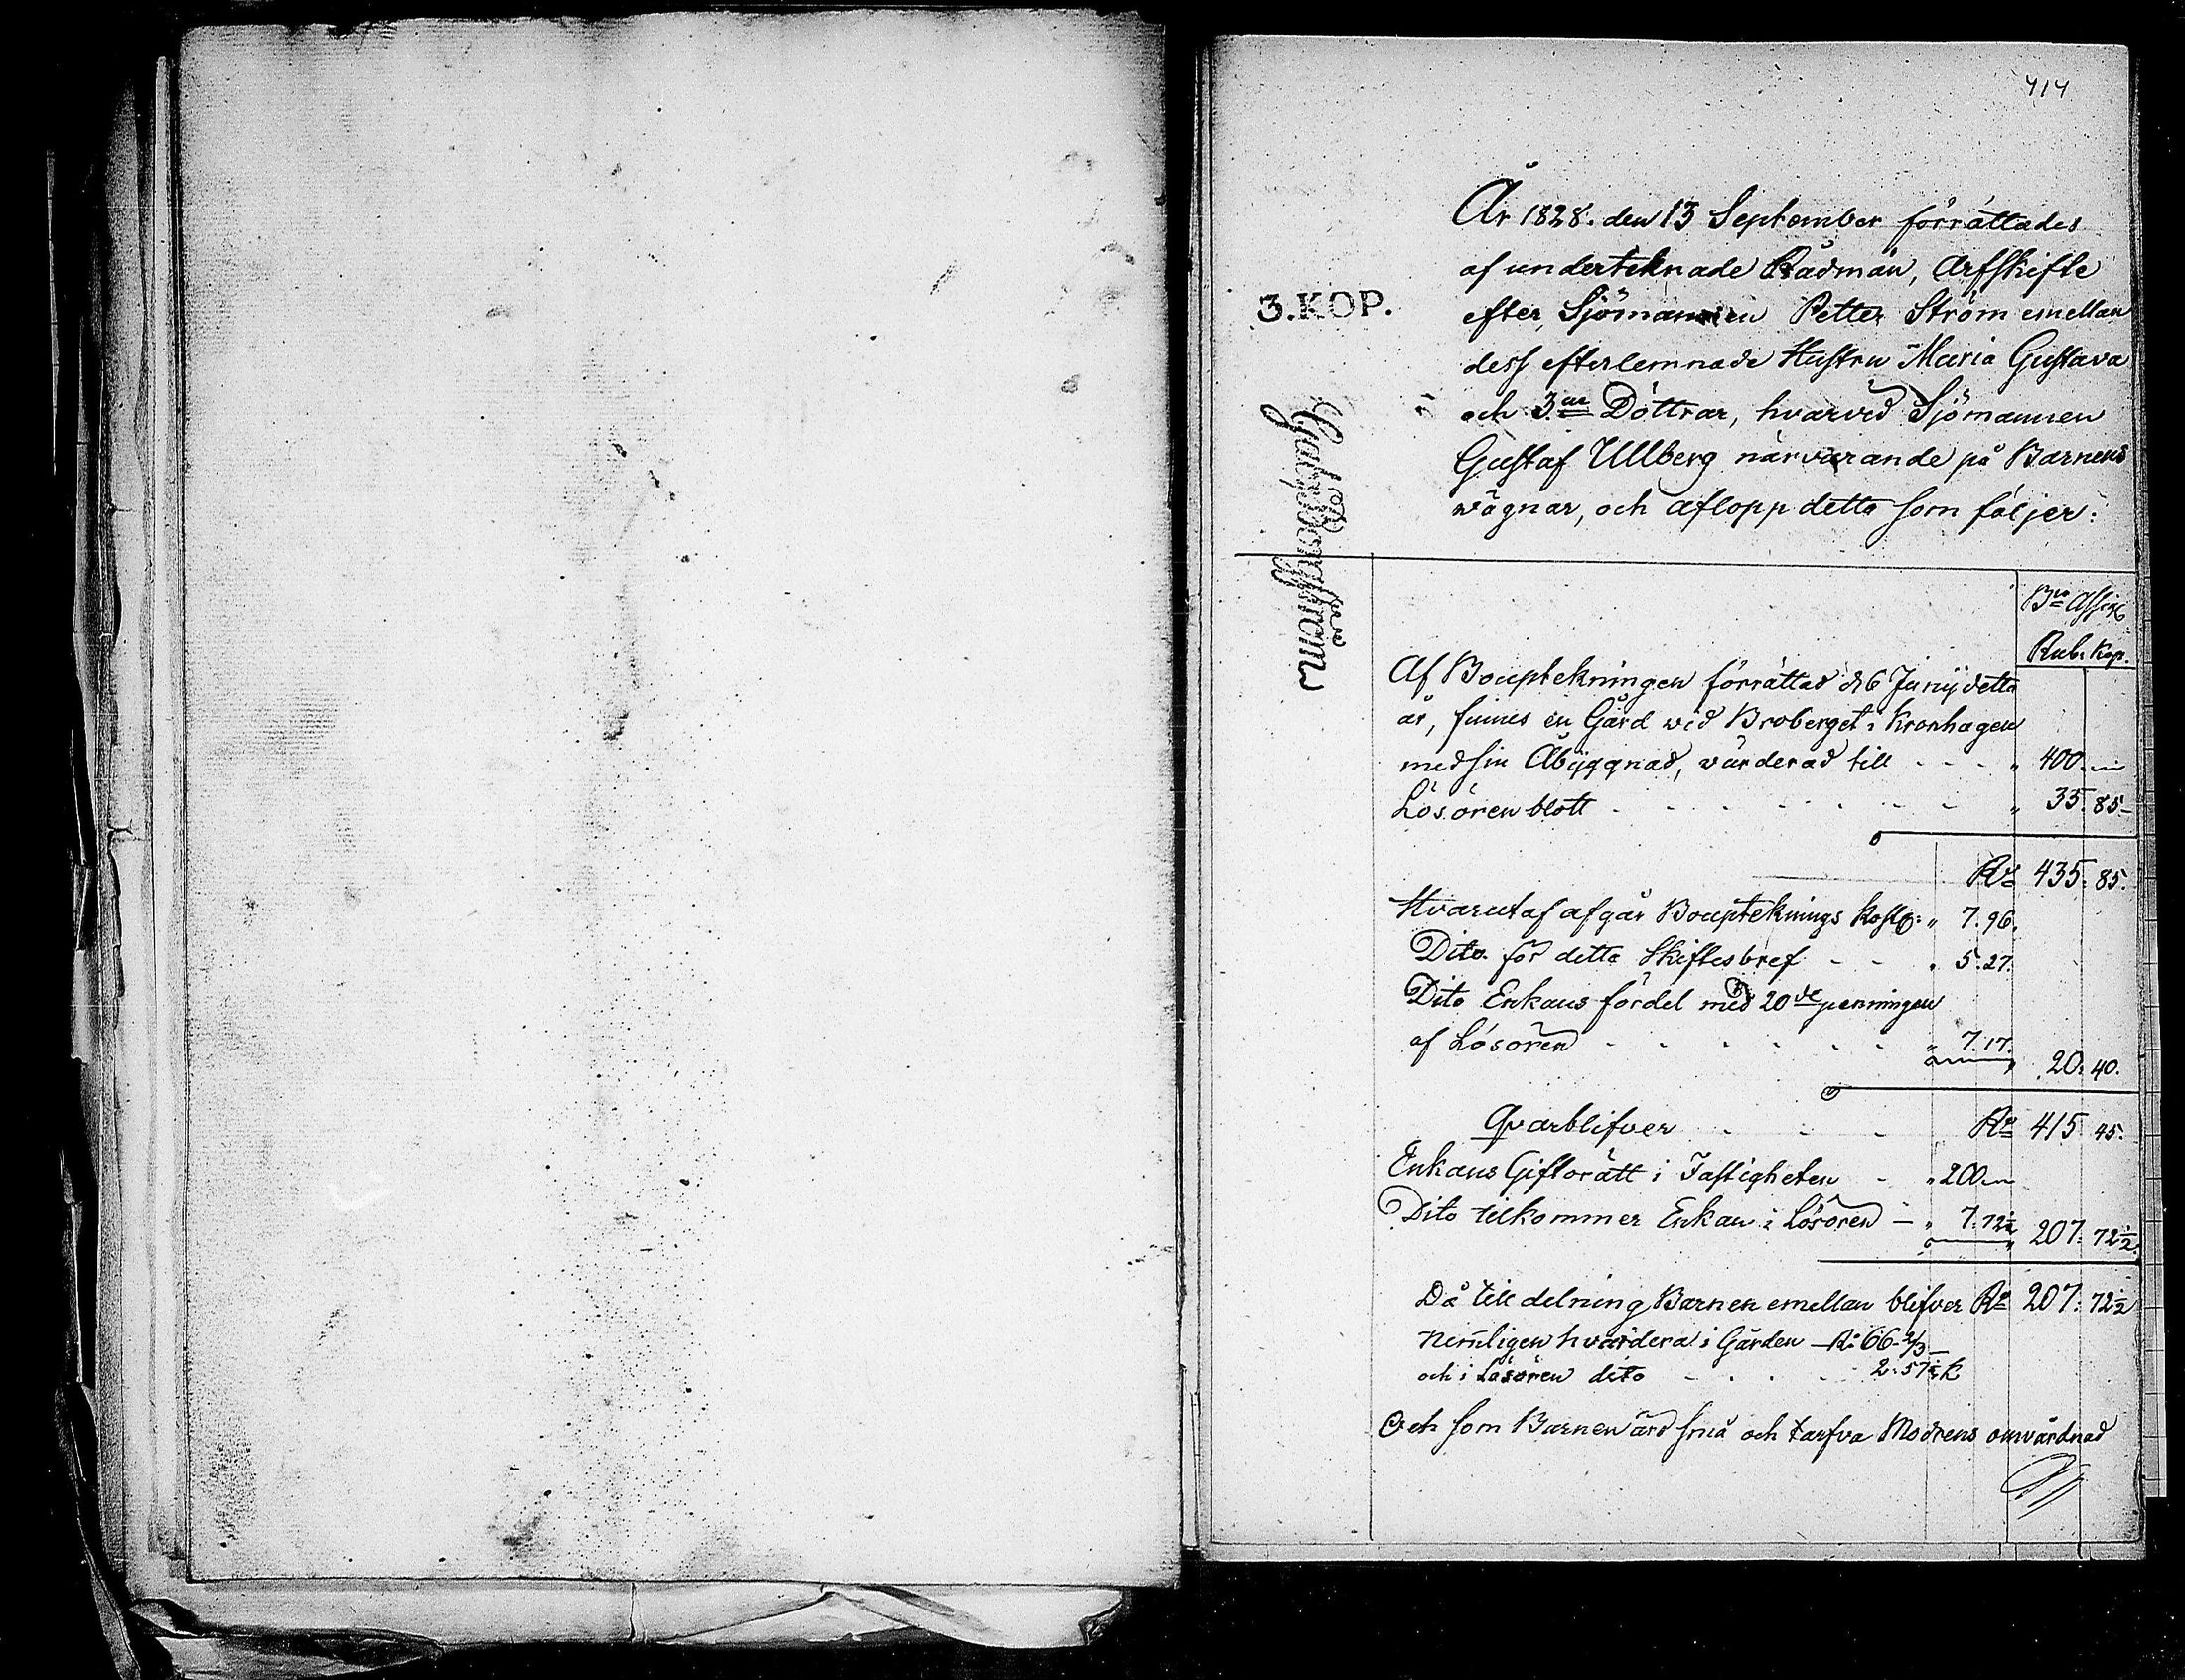 414
År 1828. den 13 September förrättades
af underteknade Rådmän, Arfskifte
3.KOP.
efter Sjömannen Petter Ström emellan
dess efterlemnade Hustru Maria Gustava
och 3.ne Döttrar, hvarvid Sjömannen
Gustaf Ullberg närvarande på Barnens
wägnar, och aflopp detta som följer:
Gabr. Borgström
B:co Assign
Rub. Kop.
Af Bouptekningen förrättad d 6 Junij detta
år, finnes en Gård wid Broberget i Kronhagen
med sin Åbyggnad, värderad till - - - " 400. -
Lösören blott - - - - - - - " 35. 85 -
R:o 435. 85.
Hvarutaf afgår Bouptecknings kostn: " 7. 96.
Dito för detta Skiftesbref - - " 5. 27.
Dito Enkans fördel med 20de penningen
af Lösören - - - - - - " 7. 17. 20. 40.
Qvarblifver - - - R:o 415. 45.
Enkans Giftorätt i Fastigheten - " 200. -
Dito tilkommer Enkan i Lösören - " 7. 72½ 207. 72½
Då till delning Barnen emellan blifver R:o 207. 72½
nemligen hvardera i Gården - R: 66 2/3 -
och i Lösören dito - - - - 2. 57½ k
Och som Barnen äro små och tarfva Modrens omvårdnad